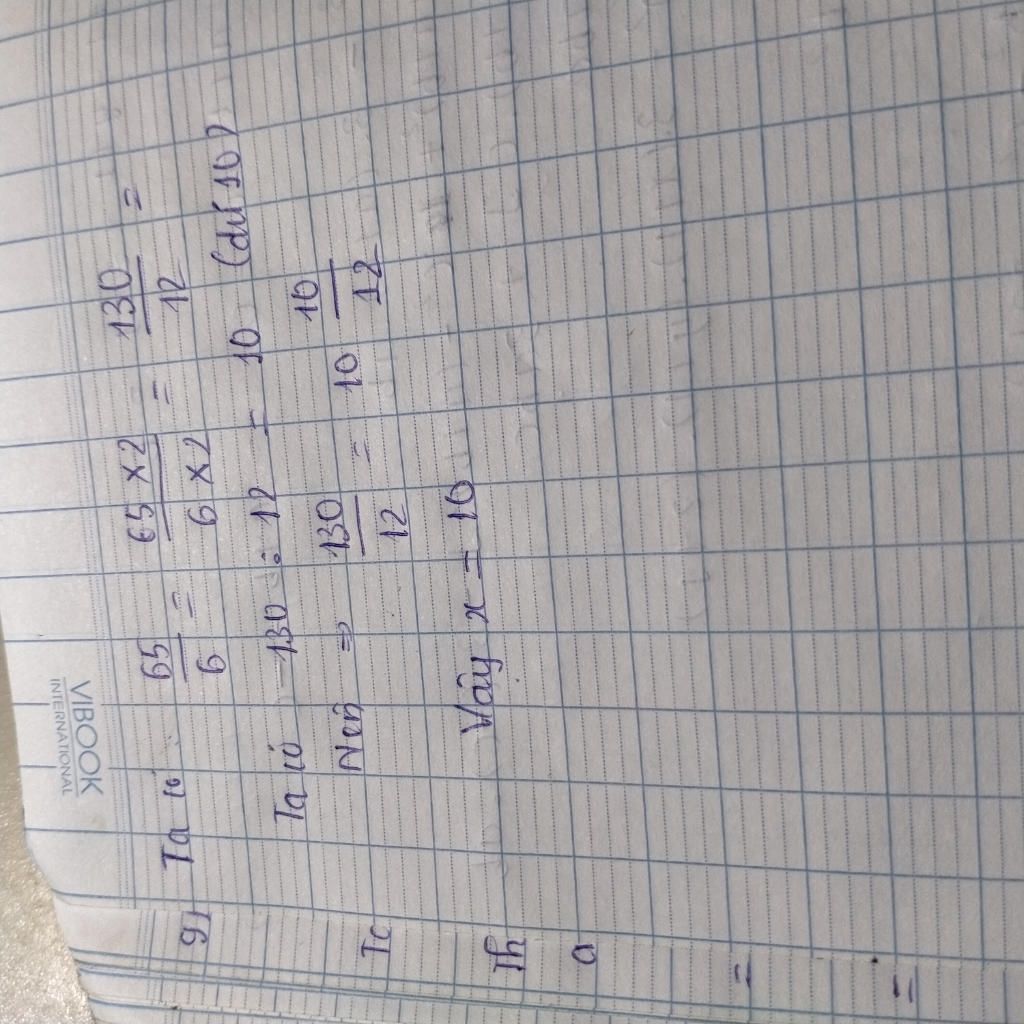 VIBOOK
INTERNATIONAL
g) Ta có 65/6 = 65 x 2/6 x 2 = 130/12 =
Ta có 130 : 12 = 10 (dư 10)
Nên => 130/12 = 10 10/12
Vậy x = 10
Th
a
=
=